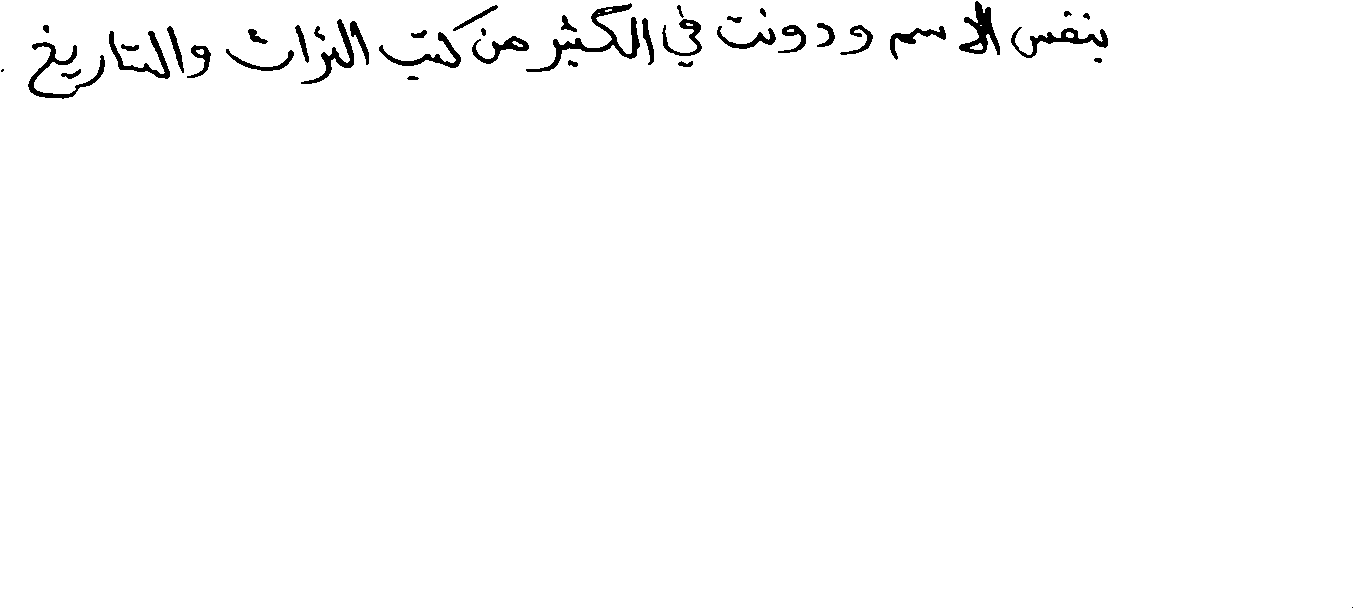 بنفس الاسم ودونت في الكثير من كتب التراث والتاريخ .